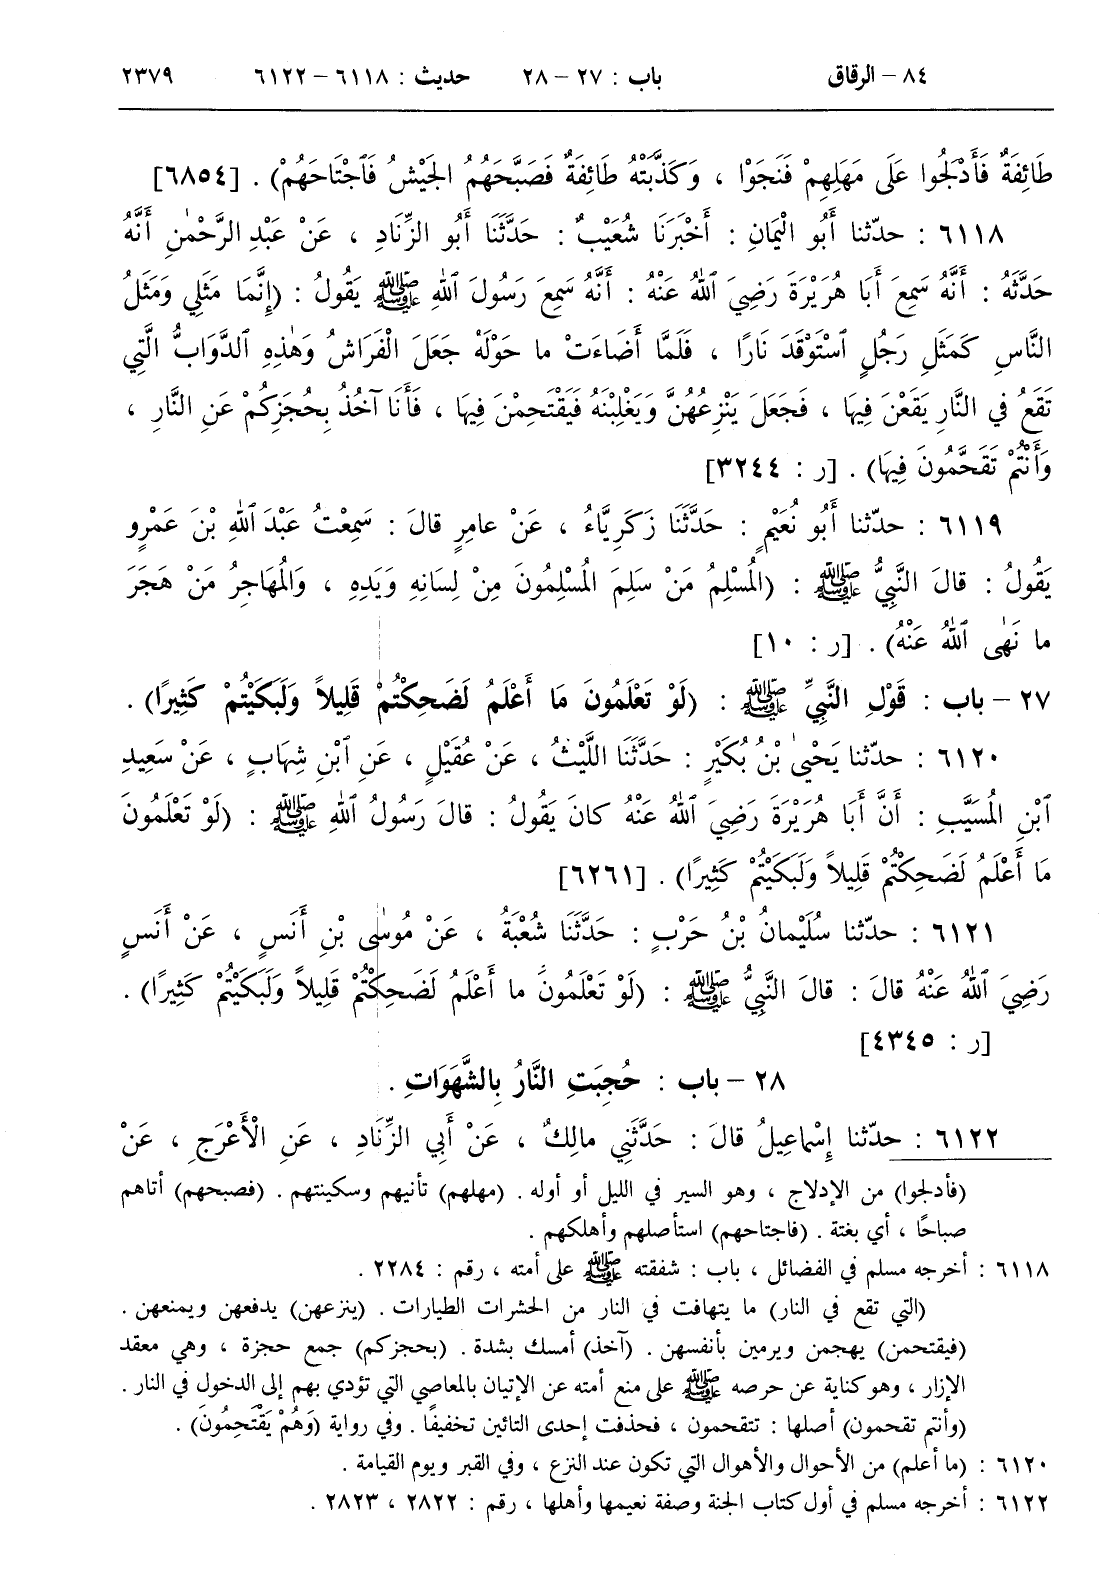 ٨٤ - الرقاق باب : ٢٧ - ٢٨ حديث : ٦١١٨ - ٦١٢٢ ٢٣٧٩
طَائِفَةٌ فَأَدْلَجُوا عَلَى مَهَلِهِمْ فَنَجَوْا ، وَكَذَّبَتْهُ طَائِفَةٌ فَصَبَّحَهُمُ الجَيْشُ فَٱجْتَاحَهُمْ) . [٦٨٥٤]
٦١١٨ : حدّثنا أَبُو الْيَمانِ : أَخْبَرَنَا شُعَيْبٌ : حَدَّثَنَا أَبُو الزِّنَادِ ، عَنْ عَبْدِ الرَّحْمٰنِ أَنَّهُ
حَدَّثَهُ : أَنَّهُ سَمِعَ أَبَا هُرَيْرَةَ رَضِيَ ٱللهُ عَنْهُ : أَنَّهُ سَمِعَ رَسُولَ ٱللهِ ﷺ يَقُولُ : (إِنَّمَا مَثَلِي وَمَثَلُ
النَّاسِ كَمَثَلِ رَجُلٍ ٱسْتَوْقَدَ نَارًا ، فَلَمَّا أَضَاءَتْ ما حَوْلَهُ جَعَلَ الْفَرَاشُ وَهٰذِهِ ٱلدَّوَابُّ الَّتِي
تَقَعُ في النَّارِ يَقَعْنَ فِيهَا ، فَجَعَلَ يَنْزِعُهُنَّ وَيَغْلِبْنَهُ فَيَقْتَحِمْنَ فِيهَا ، فَأَنَا آخُذُ بِحُجَزِكُمْ عَنِ النَّارِ ،
وَأَنْتُمْ تَقَحَّمُونَ فِيهَا) . [ر : ٣٢٤٤]
٦١١٩ : حدّثنا أَبُو نُعَيْمٍ : حَدَّثَنَا زَكَرِيَّاءُ ، عَنْ عامِرٍ قالَ : سَمِعْتُ عَبْدَ ٱللهِ بْنَ عَمْرٍو
يَقُولُ : قالَ النَّبِيُّ ﷺ : (المُسْلِمُ مَنْ سَلِمَ المُسْلِمُونَ مِنْ لِسَانِهِ وَيَدِهِ ، وَالمُهَاجِرُ مَنْ هَجَرَ
ما نَهٰى ٱللهُ عَنْهُ) . [ر : ١٠]
٢٧ - باب : قَوْلِ النَّبِيِّ ﷺ : (لَوْ تَعْلَمُونَ مَا أَعْلَمُ لَضَحِكْتُمْ قَلِيلاً وَلَبَكَيْتُمْ كَثِيرًا) .
٦١٢٠ : حدّثنا يَحْيىٰ بْنُ بُكَيْرٍ : حَدَّثَنَا اللَّيْثُ ، عَنْ عُقَيْلٍ ، عَنِ ٱبْنِ شِهَابٍ ، عَنْ سَعِيدِ
ٱبْنِ المُسَيَّبِ : أَنَّ أَبَا هُرَيْرَةَ رَضِيَ ٱللهُ عَنْهُ كانَ يَقُولُ : قالَ رَسُولُ ٱللهِ ﷺ : (لَوْ تَعْلَمُونَ
مَا أَعْلَمُ لَضَحِكْتُمْ قَلِيلاً وَلَبَكَيْتُمْ كَثِيرًا) . [٦٢٦١]
٦١٢١ : حدّثنا سُلَيْمانُ بْنُ حَرْبٍ : حَدَّثَنَا شُعْبَةُ ، عَنْ مُوسٰى بْنِ أَنَسٍ ، عَنْ أَنَسٍ
رَضِيَ ٱللهُ عَنْهُ قالَ : قالَ النَّبِيُّ ﷺ : (لَوْ تَعْلَمُونَ ما أَعْلَمُ لَضَحِكْتُمْ قَلِيلاً وَلَبَكَيْتُمْ كَثِيرًا) .
[ر : ٤٣٤٥]
٢٨ - باب : حُجِبَتِ النَّارُ بِالشَّهَوَاتِ .
٦١٢٢ : حدّثنا إِسْماعِيلُ قالَ : حَدَّثَنِي مالِكٌ ، عَنْ أَبِي الزِّنَادِ ، عَنِ الْأَعْرَجِ ، عَنْ
(فأدلجوا) من الإدلاج ، وهو السير في الليل أو أوله . (مهلهم) تأنيهم وسكينتهم . (فصبحهم) أتاهم
صباحًا ، أي بغتة . (فاجتاحهم) استأصلهم وأهلكهم .
٦١١٨ : أخرجه مسلم في الفضائل ، باب : شفقته ﷺ على أمته ، رقم : ٢٢٨٤ .
(التي تقع في النار) ما يتهافت في النار من الحشرات الطيارات . (ينزعهن) يدفعهن ويمنعهن .
(فيقتحمن) يهجمن ويرمين بأنفسهن . (آخذ) أمسك بشدة . (بحجزكم) جمع حجزة ، وهي معقد
الإزار ، وهو كناية عن حرصه ﷺ على منع أمته عن الإتيان بالمعاصي التي تؤدي بهم إلى الدخول في النار .
(وأنتم تقحمون) أصلها : تتقحمون ، فحذفت إحدى التائين تخفيفًا . وفي رواية (وَهُمْ يَقْتَحِمُونَ) .
٦١٢٠ : (ما أعلم) من الأحوال والأهوال التي تكون عند النزع ، وفي القبر ويوم القيامة .
٦١٢٢ : أخرجه مسلم في أول كتاب الجنة وصفة نعيمها وأهلها ، رقم : ٢٨٢٢ ، ٢٨٢٣ .